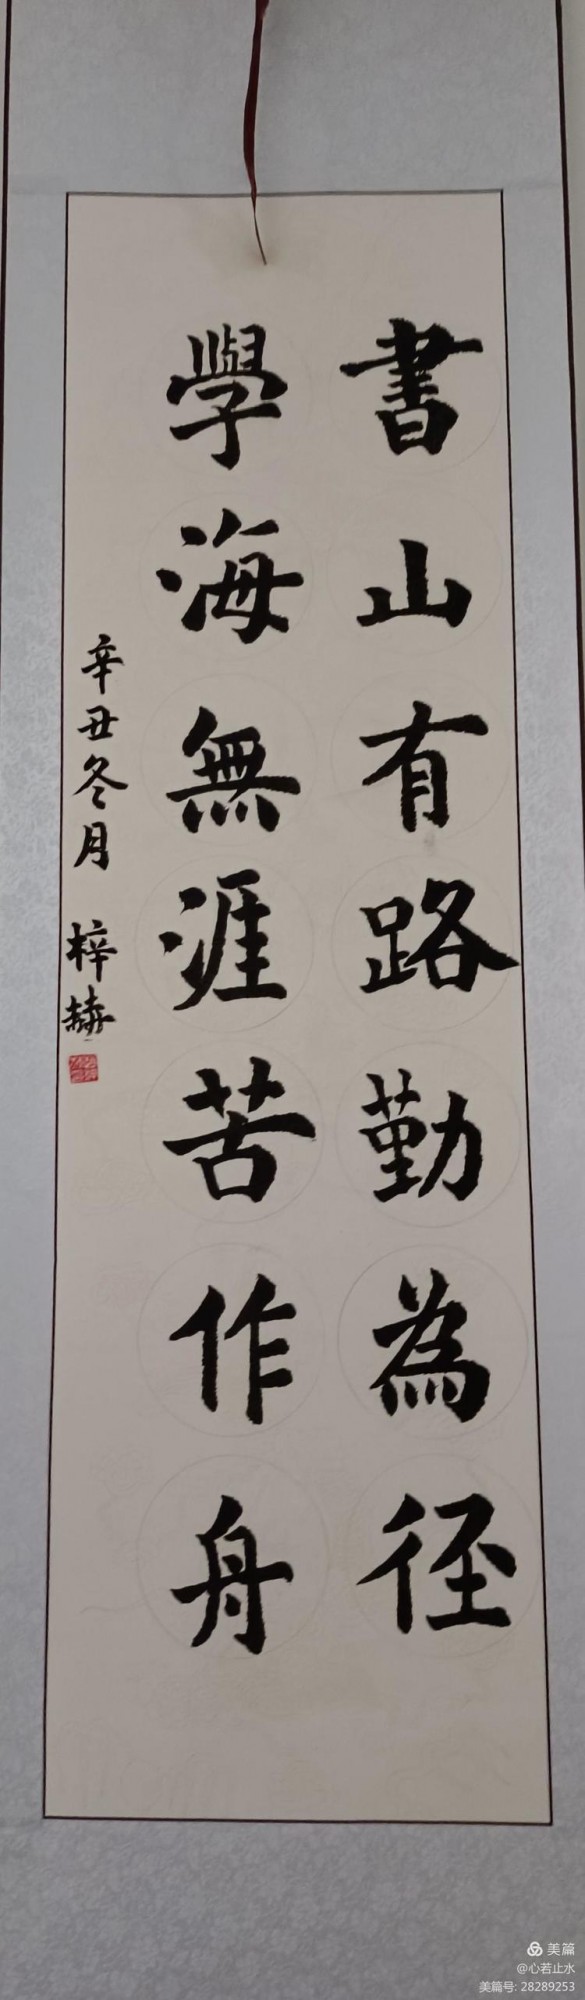 書山有路勤為徑
學海無涯苦作舟
辛丑冬月 梓赫
美篇
@心若止水
美篇号: 28289253